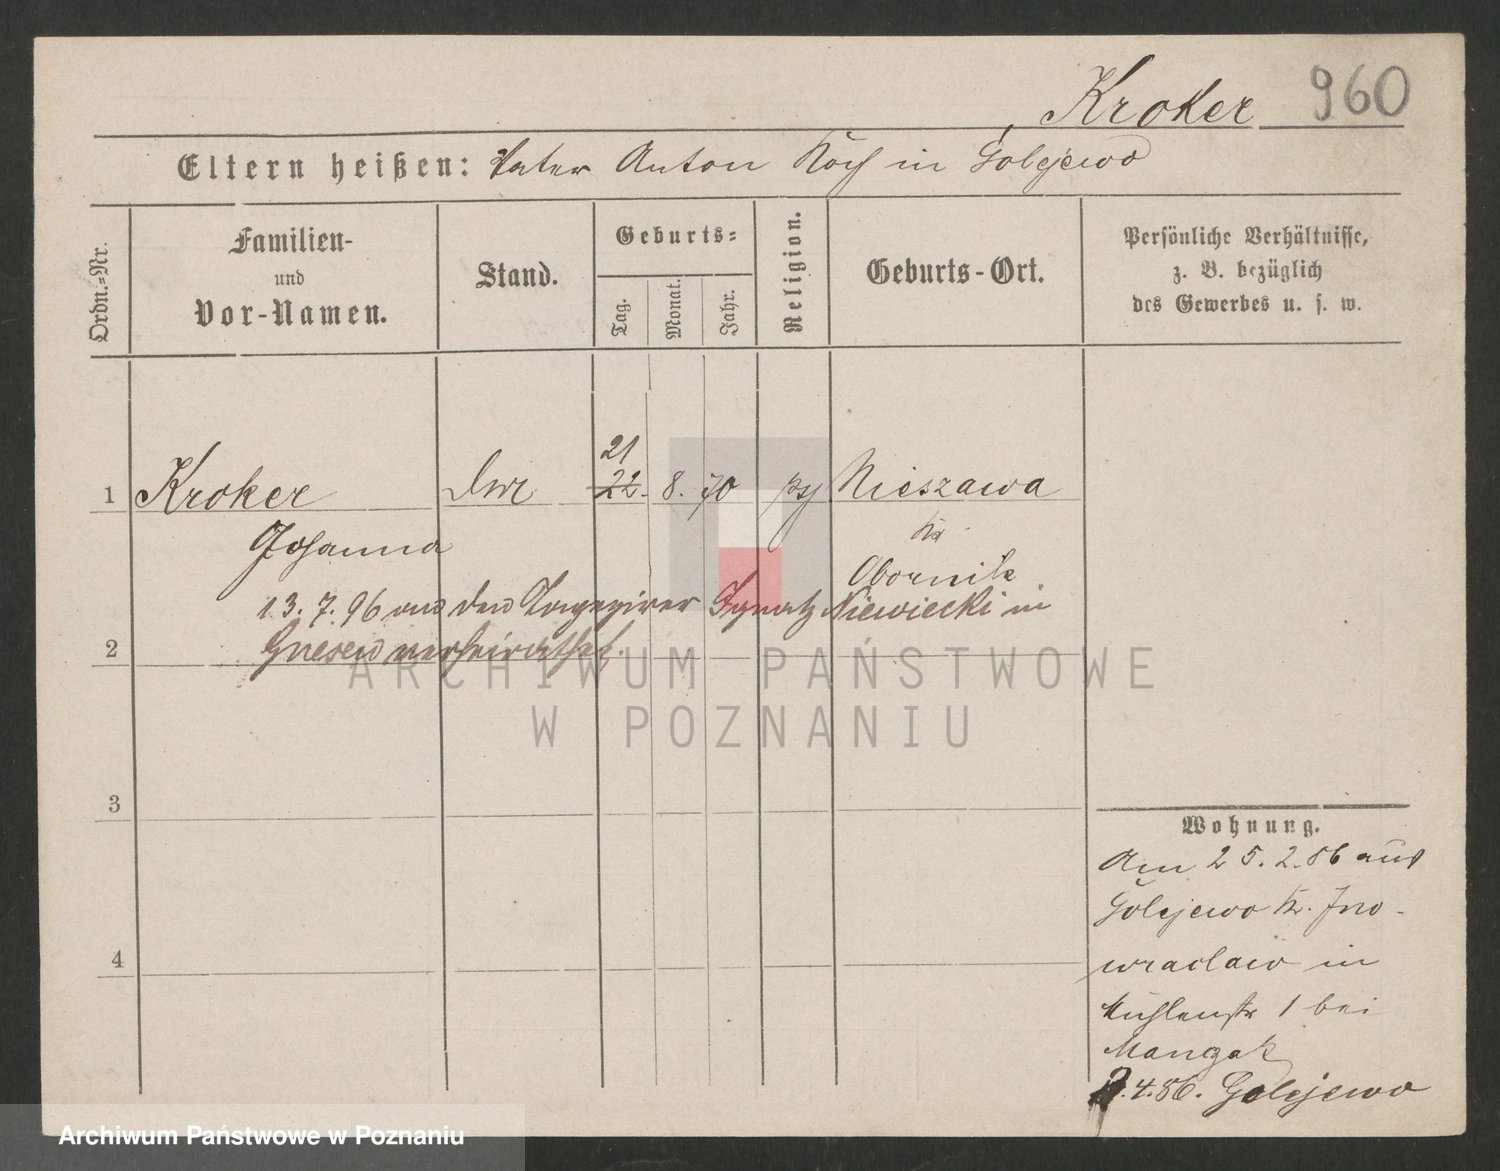 Kroker 960
Eltern heißen: Vater Anton Koch in Golejewo
Ordn.-Nr.
Familien-
und
Vor-Namen.
Stand.
Geburts-
Tag.
Monat.
Jahr.
Religion.
Geburts-Ort.
Persönliche Verhältnisse,
z. B. bezüglich
des Gewerbes u. s. w.
21
1 Kroker 22. 8. 70 Nieszawa
Johanna Kr
Obornik
13. 7. 96 an den Ignatz Niewiecki in
2 Gnesen verheirathet.
ARCHIWUM PAŃSTWOWE
W POZNANIU
3
4
Wohnung.
Am 25. 2. 86 aus
Golejewo Kr. Ino-
wraclaw in
Mühlenstr 1 bei
Mangak
2.4.86. Golejewo
Archiwum Państwowe w Poznaniu